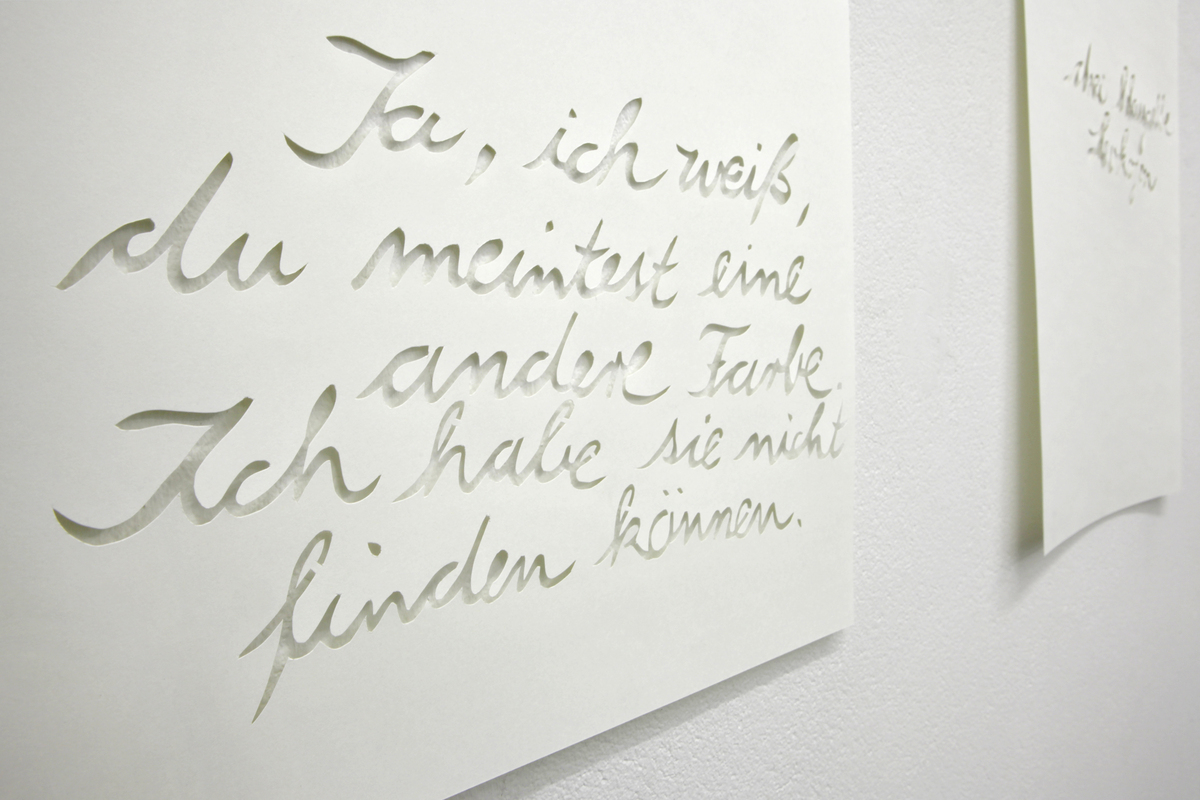 Ja, ich weiß,
du meintest eine
andere Farbe.
Ich habe sie nicht
finden können.